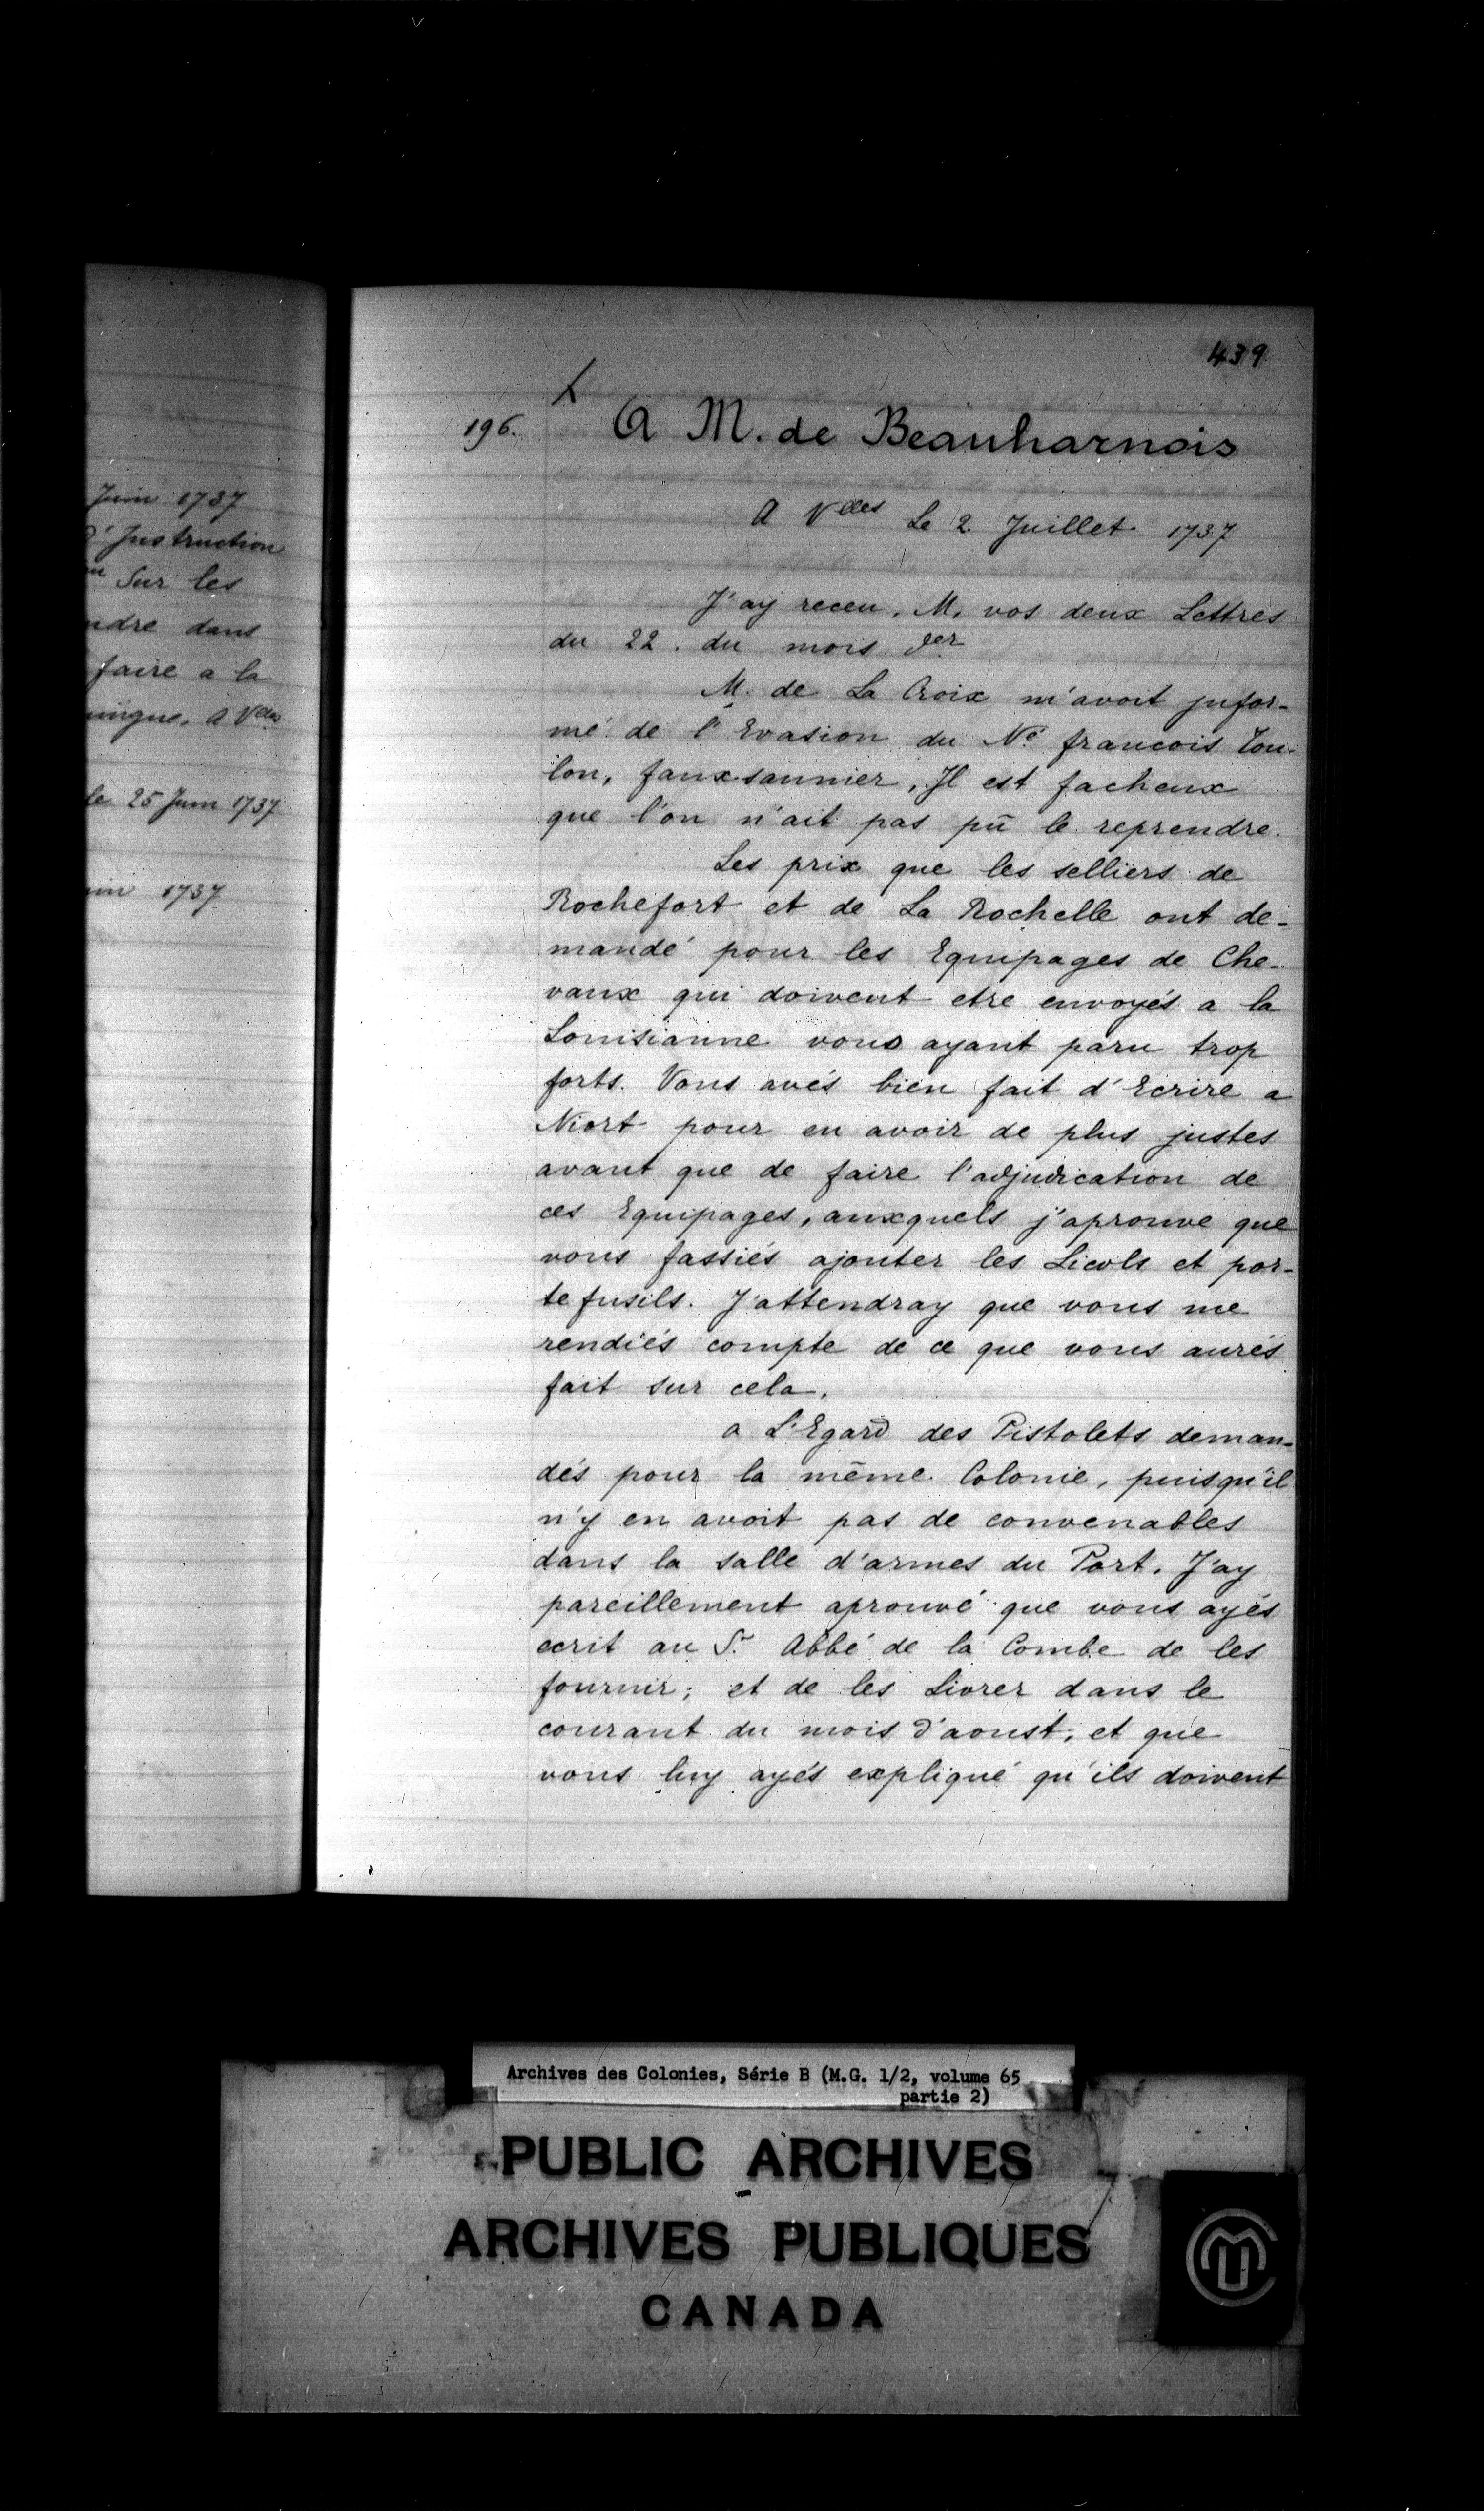 Juin 1737
d'Instruction
Sur les
ndre dans
faire a la
ningue. A Vlles
le 25 Juin 1737
uin 1737
439
196.
A M. de Beauharnois
A Vlles Le 2. Juillet 1737
J'ay receu, M. vos deux Lettres
du 22. du mois der
M. de La Croix m'avoit jnfor-
mé de l'Evasion du Né francois Tou-
lon, faux-saunier, Jl est facheux
que l'on n'ait pas pû le reprendre.
Les prix que les selliers de
Rochefort et de La Rochelle ont de-
mandé pour les Equipages de Che-
vaux qui doivent etre envoyés a la
Louisianne vous ayant paru trop
forts. Vous avés bien fait d'Ecrire a
Niort pour en avoir de plus justes
avant que de faire l'adjudication de
ces Equipages, auxquels j'aprouve que
vous fassiés ajouter les Licols et por-
te fusils. J'attendray que vous me
rendiés compte de ce que vous aurés
fait sur cela.
a L'Egard des Pistolets deman-
dés pour la même Colonie, puisqu'il
n'y en avoit pas de convenables
dans la salle d'armes du Port. J'ay
pareillement aprouvé que vous ayés
ecrit au S. Abbé de la Combe de les
fournir; et de les Livrer dans le
courant du mois d'aoust, et que
vous luy ayés expliqué qu'ils doivent
Archives des Colonies, Série B (M.G. 1/2, volume 65
partie 2)
PUBLIC ARCHIVES
ARCHIVES PUBLIQUES
CANADA